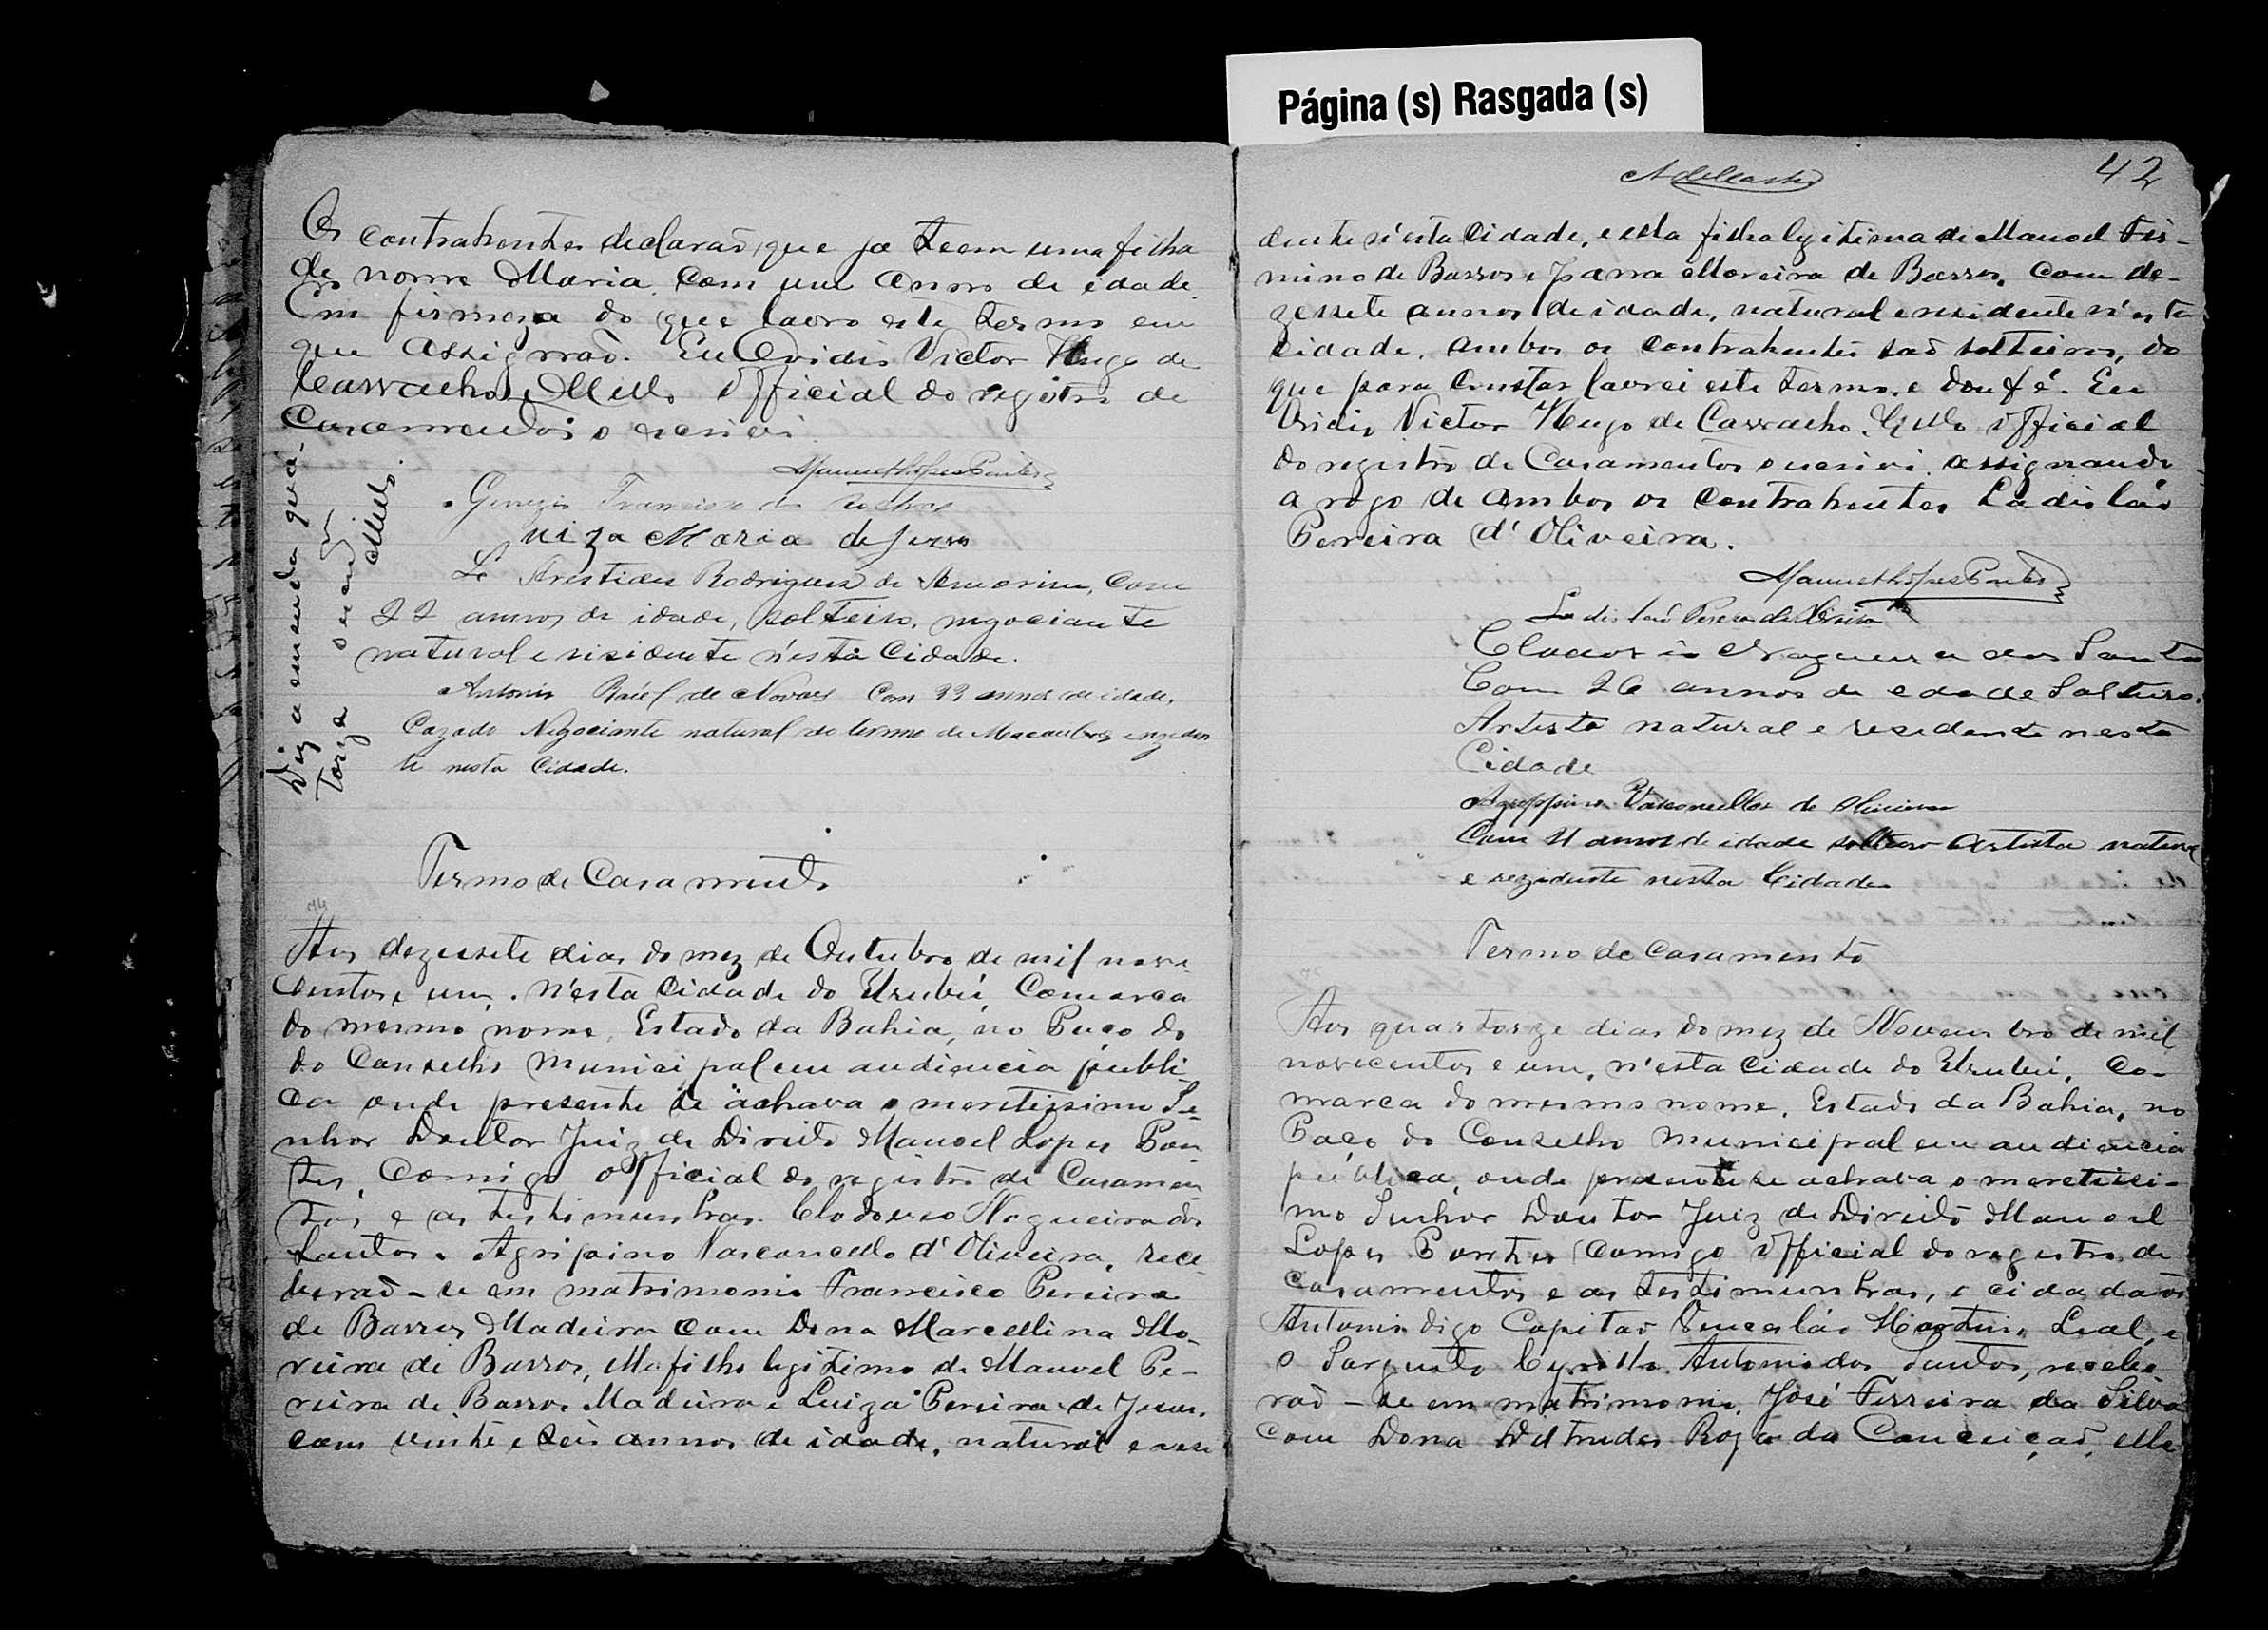 Página (s) Rasgada (s)
Os contrahentes declaraõ que ja teem uma filha
de nome Maria, com um anno de idade.
Em firmeza do que lavro este termo em
que assignaõ. Eu Ovidio Victor Hugo de
Carvalho e Mello official do registro de
Casamentos o escrevi.
Manuel Lopes Pontes
Francisco
Maria de Jezus
Arestides Rodrigues de Amorim, com
22 annos de idade, solteiro, negociante
natural e risidente n'esta Cidade.
Antonio Raúl de Novaes Com 33 annos de idade,
Cazado Negociante natural do termo de Macaubas e rezeden
te nesta Cidade.
Diz a emenda qua-
torze
Mello
Termo de Casamento
74
Aos dezessete dias do mez de Outubro de mil nove
centos e um, n'esta Cidade do Urubú, Comarca
do mesmo nome, Estado da Bahia, no Paço do
do Conselho Municipal em audiencia publi-
ca onde presente se achava o meretissimo Se-
nhor Doutor Juiz de Direito Manoel Lopes Pon
tes, Comigo official do registro de Casamen
tos e as testimunhas Clodoveo Nogueira dos
Santos e Agripino Vasconcello d'Oliveira, rece
beraõ-se em matrimonio Francisco Pereira
de Barros Madeira com Dona Marcellina Mo-
reira de Barros, elle filho legitimo de Manoel Pe-
reira de Barros Madeira e Luiza Pereira de Jesus,
com vinte e seis annos de idade, natural e resi
42
dente n'esta Cidade, e ella filha legitima de Manoel Fir-
mino de Barros e Joana Moreira de Barros, com de-
zessete annos de idade, natural e residente n'esta
Cidade, ambos os contrahentes saõ solteiros, do
que para constar lavrei este termo, e dou fé. Eu
Ovidio Victor Hugo de Carvalho Mello official
do registro de Casamentos o escrivi, assignando
a rogo de ambos os Contrahentes Ladisláo
Pereira d'Oliveira.
Manuel Lopes Pontes
Ladisláo Perera de Oliveira
Nogueira dos Santos
Com 26 annos de edade Solteiro.
Artista natural e resedente nesta
Cidade
Agrippino Vasconcellos de Oliveira
Com 21 annos de idade solteiro artista natural
e rezidente nesta Cidade
Termo de Casamento
Aos quartorze dias do mez de Novembro de mil
novecentos e um, n'esta Cidade do Urubú, Co-
marca do mesmo nome, Estado da Bahia, no
Paço do Conselho Municipal em audiencia
publica, onde presente se achava o meretissi-
mo Senhor Doutor Juiz de Direito Manoel
Lopes Pontes Comigo official do registro de
Casamentos e as testimunhas, o cidadaõs
Antonio digo Capitaõ Vencesláo Martins Leal, e
o Sargento Cyrillo Antonio dos Santos, recebe
raõ-se em matrimonio, José Ferreira da Silva
com Dona Deltrudes Roza da Conceiçaõ, elle